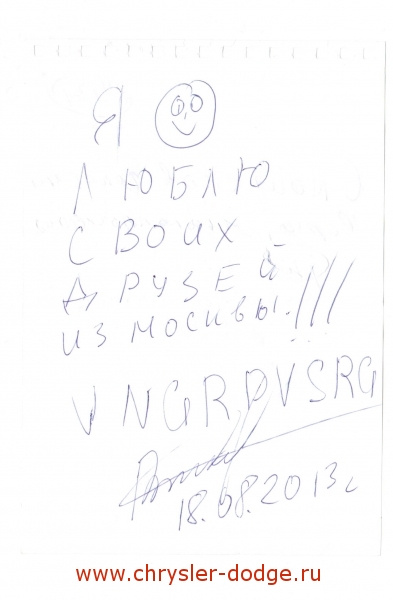 Я
ЛЮБЛЮ
СВОИХ
ДРУЗЕЙ
ИЗ МОСКВЫ.!!!
VNGRDVSRG
18.08.2013г
www.chrysler-dodge.ru